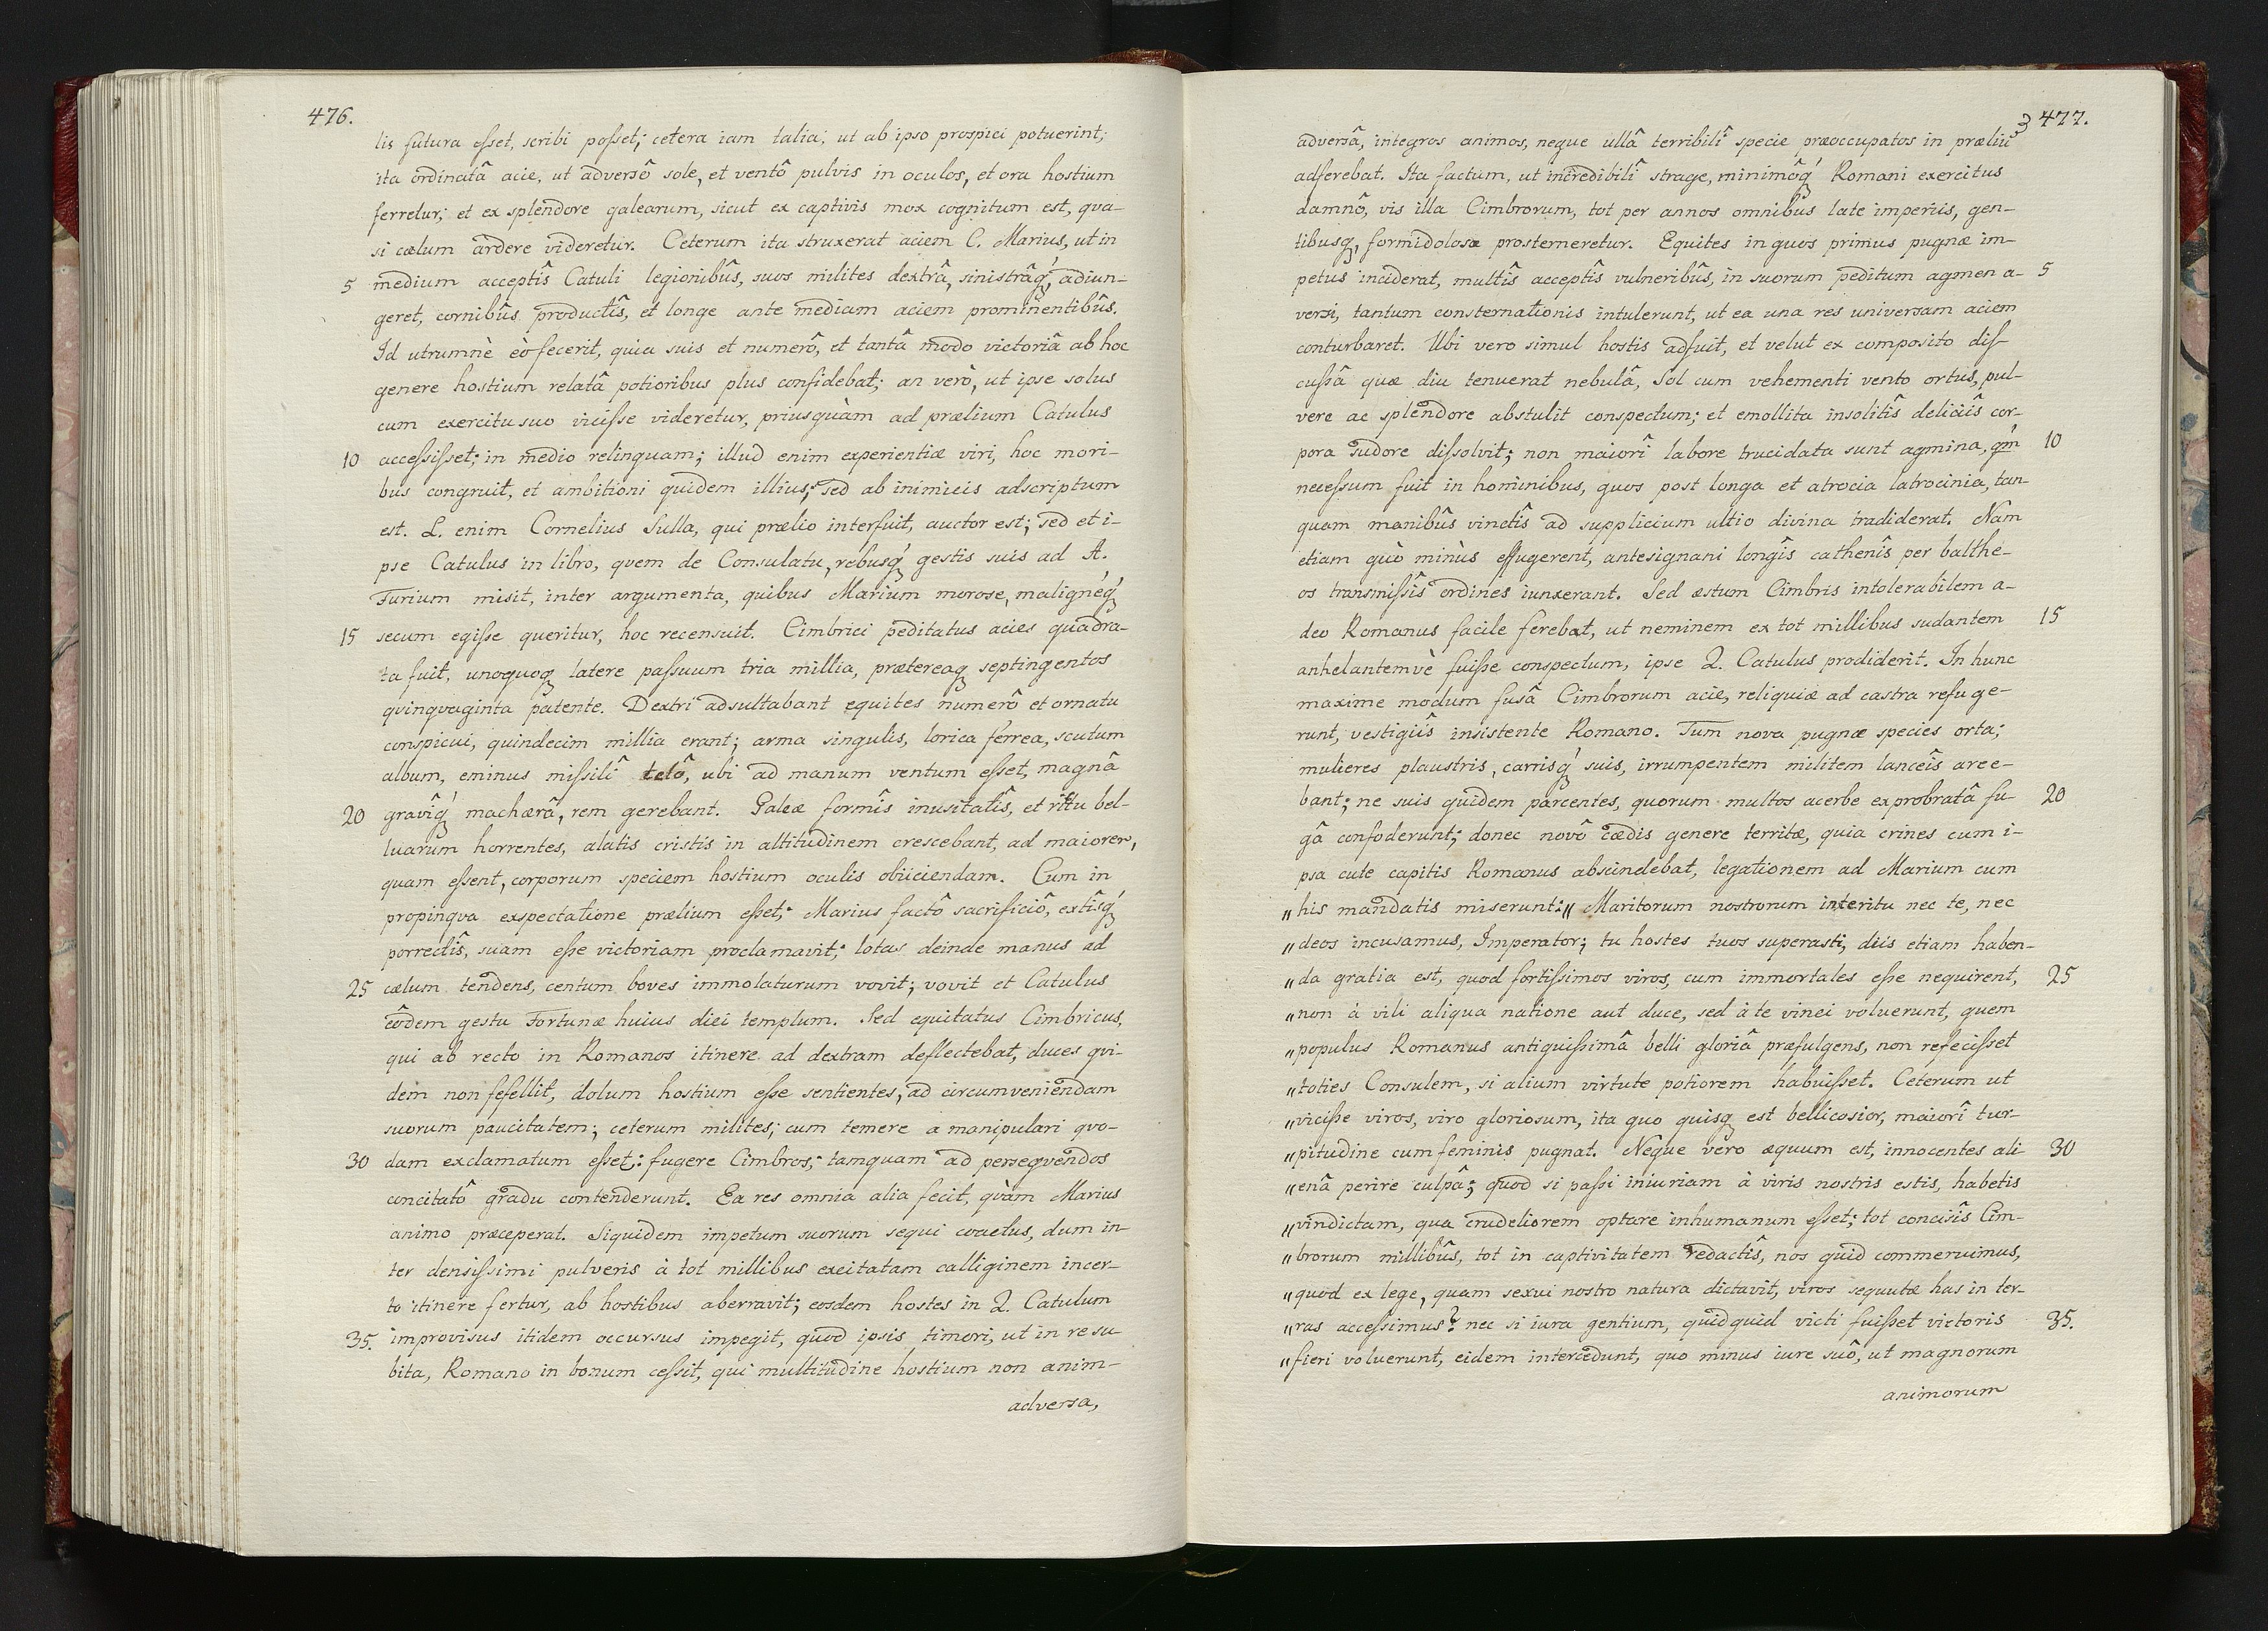 476.
lis futura esset, scribi posset; cetera iam talia, ut ab ipso prospici potuerint;
ita ordinatâ acie, ut adversô sole, et ventô pulvis in oculos, et ora hostium
ferretur; et ex splendore galearum, sicut ex captivis mox cognitum est, qva-
si cælum ardere videretur. Ceterum ita struxerat aciem C. Marius, ut in
5 medium acceptîs Catuli legionibûs, suos milites dextrâ, sinistrâq́ꝫ adiun-
geret, cornibûs productîs, et longe ante mediam aciem prominentibûs.
Id utrumnè eò fecerit, quia suis et numerô, et tantâ modo victoriâ ab hoc
genere hostium relatâ potioribus plus confidebat; an verò, ut ipse solus
cum exercitu suo vicisse videretur, priusquàm ad prælium Catulus
10 accessisset; in medio relinquam; illud enim experientiæ viri, hoc mori-
bus congruit, et ambitioni quidem illius; sed ab inimicis adscriptum
est. L. enim Cornelius Sulla, qui prælio interfuit, auctor est; sed et i-
pse Catulus in libro, qvem de Consulatu, rebusq́ꝫ gestis suis ad A.
Furium misit, inter argumenta, quibus Marium morose, malignéq́ꝫ
15 secum egisse queritur, hoc recensuit. Cimbrici peditatus acies quadra-
ta fuit, unoquoqꝫ latere passuum tria millia, prætereaqꝫ septingentos
qvinqvaginta patente. Dextri adsultabant equites numerô et ornatu
conspicui, quindecim millia erant; arma singulis, lorica ferrea, scutum
album, eminus missilî telô, ubi ad manum ventum esset, magnâ
20 gravîq́ꝫ machærâ, rem gerebant. Galeæ formîs inusitatîs, et ritu bel-
luarum horrentes, alatis cristis in altitudinem crescebant, ad maiorem,
quam essent, corporum speciem hostium oculis obiiciendam. Cum in
propinqva exspectatione prælium esset; Marius factô sacrificiô, extîsq́ꝫ
porrectîs, suam esse victoriam proclamavit; lotas deinde manus ad
25 cælum tendens, centum boves immolaturum vovit; vovit et Catulus
eôdem gestu Fortunæ huius diei templum. Sed equitatus Cimbricus,
qui ab recto in Romanos itinere ad dextram deflectebat, duces qvi-
dem non fefellit, dolum hostium esse sentientes, ad circumveniendam
suorum paucitatem; ceterum milites; cum temere a manipulari qvo-
30 dam exclamatum esset: fugere Cimbros; tamquam ad perseqvendos
concitatô gradu contenderunt. Ea res omnia alia fecit, qvàm Marius
animo præceperat. Siquidem impetum suorum sequi coactus, dum in-
ter densissimi pulveris à tot millibus excitatam calliginem incer-
to itinere fertur, ab hostibus aberravit; eosdem hostes in Q. Catulum
35. improvisus itidem occursus impegit, quod ipsis timori, ut in re su-
bita, Romano in bonum cessit, qui multitudine hostium non anim-
adversa,
3 477.
adversâ, integros animos, neque ullâ terribilî specie præoccupatos in præliu
adferebat. Ita factum, ut incredibilî strage, minimôq́ꝫ Romani exercitus
damnô, vis illa Cimbrorum, tot per annos omnibus late imperiis, gen-
tibusqꝫ formidolosa prosterneretur. Equites in quos primus pugnæ im-
petus inciderat, multîs acceptîs vulneribûs, in suorum peditum agmen a- 5
versi, tantum consternationis intulerunt, ut ea una res universam aciem
conturbaret. Ubi vero simul hostis adfuit, et velut ex composito dis-
cussâ quæ diu tenuerat nebulâ, Sol cum vehementi vento ortus, pul-
vere ac splendore abstulit conspectum; et emollita insolitîs deliciîs cor-
pora sudore dissolvit; non maiorî labore trucidata sunt agmina, qm̃ 10
necessum fuit in hominibus, quos post longa et atrocia latrocinia, tan-
quam manibûs vinctîs ad supplicium ultio divina tradiderat. Nam
etiam quò minùs effugerent, antesignani longîs cathenîs per balthe-
os transmissîs ordines iunxerant. Sed æstum Cimbris intolerabilem a-
deo Romanus facile ferebat, ut neminem ex tot millibus sudantem 15
anhelantemvè fuisse conspectum, ipse Q. Catulus prodiderit. In hunc
maxime modum fusâ Cimbrorum acie, reliquiæ ad castra refuge-
runt, vestigiîs insistente Romano. Tum nova pugnæ species orta;
mulieres plaustris, carrisq́ꝫ suis, irrumpentem militem lanceîs arce-
bant; ne suis quidem parcentes, quorum multos acerbe exprobratâ fu- 20
gâ confoderunt; donec novô cædis genere territæ, quia crines cum i-
psa cute capitis Romanus abscindebat, legationem ad Marium cum
„his mandatis miserunt: „Maritorum nostrorum interitu nec te, nec
„deos incusamus, Imperator; tu hostes tuos superasti, diis etiam haben-
„da gratia est, quod fortissimos viros, cum immortales esse nequirent, 25
„non à vili aliqua natione aut duce, sed à te vinci voluerunt, quem
„populus Romanus antiquissimâ belli gloriâ præfulgens, non refecisset
„toties Consulem, si alium virtute potiorem habuisset. Ceterum ut
„vicisse viros, viro gloriosum, ita quo quisqꝫ est bellicosior, maiorî tur-
„pitudine cum feminis pugnat. Neque vero æquum est, innocentes ali- 30
„enâ perire culpâ; quod si passi iniuriam à viris nostris estis, habetis
„vindictam, qua crudeliorem optare inhumanum esset; tot concisîs Cim-
„brorum millibûs, tot in captivitatem redactîs, nos quid commeruimus,
„quod ex lege, quam sexui nostro natura dictavit, viros sequutæ has in ter-
„ras accessimus? nec si iura gentium, quidquid victi fuisset victoris 35.
„fieri voluerunt, eidem intercedunt, quo minus iure suô, ut magnorum
animorum